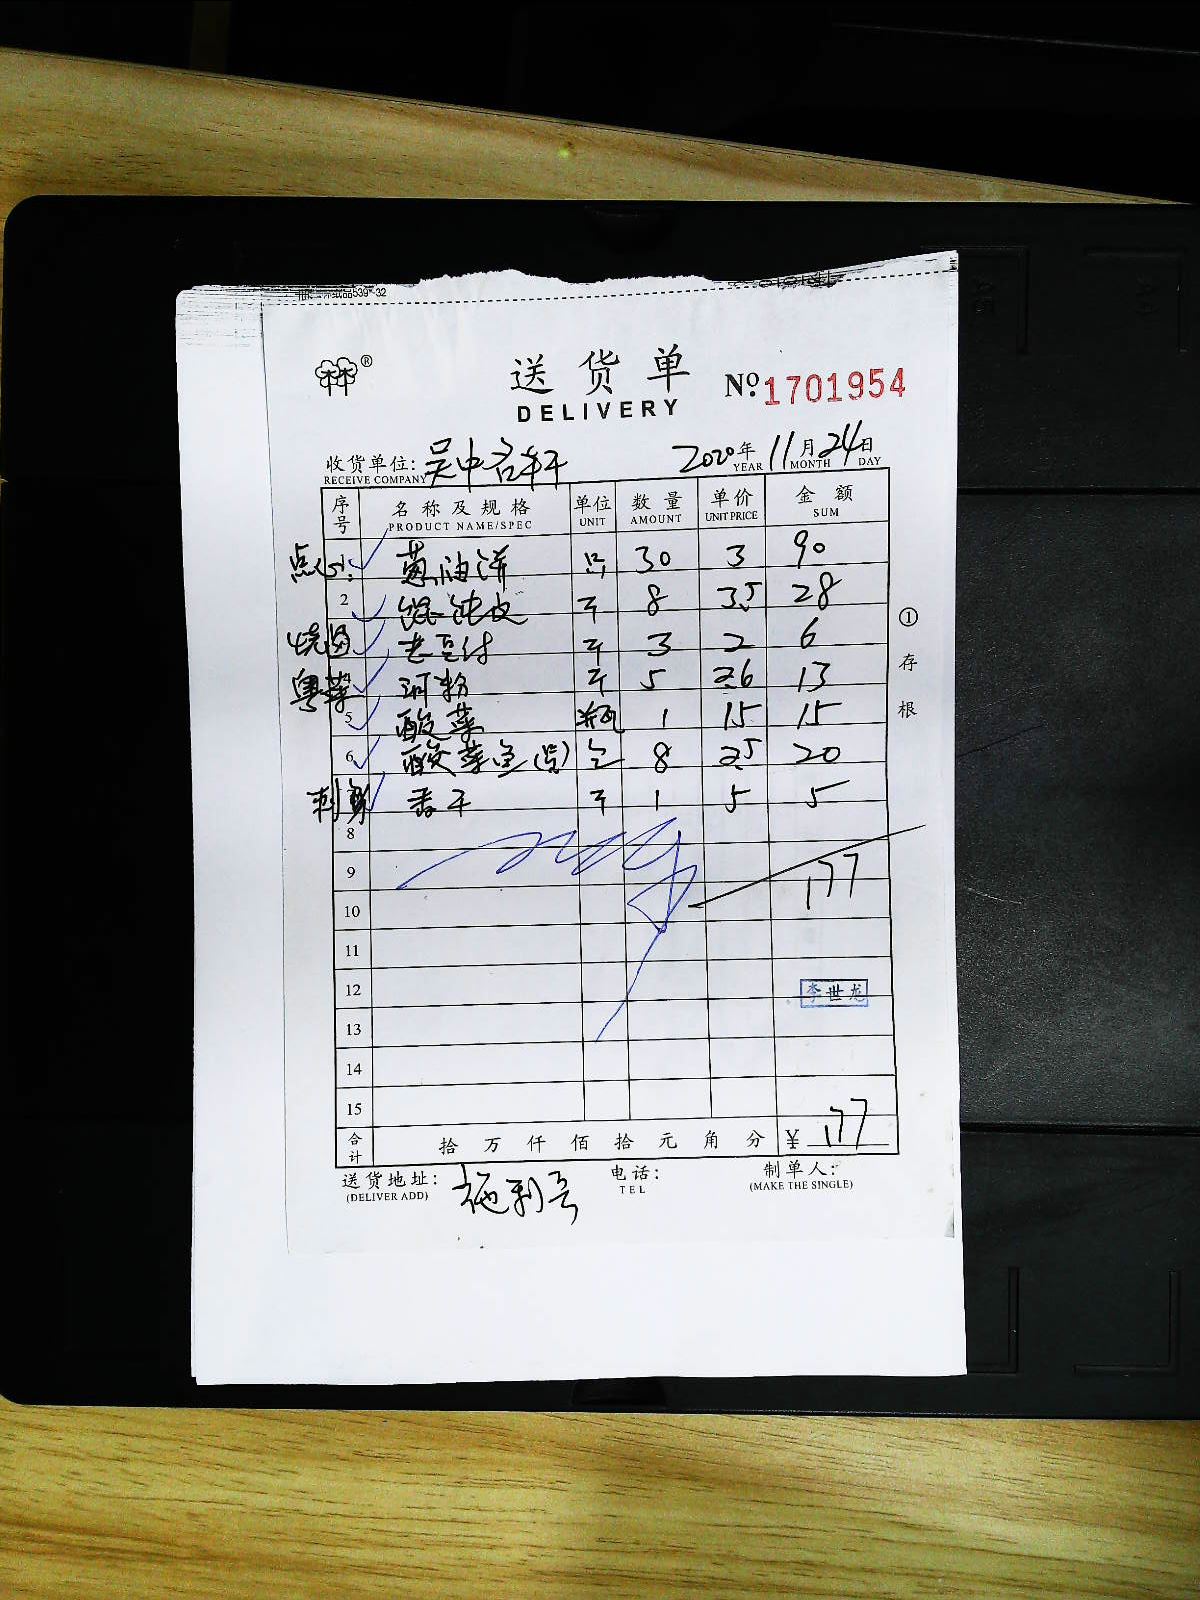 送货单
DELIVERY
№:1701954
收货单位: 吴中名轩 2020年11月24日
RECEIVE COMPANY YEAR MONTH DAY
序号 名称及规格 单位 数量 单价 金额
PRODUCT NAME/SPEC UNIT AMOUNT UNIT PRICE SUM
点心: 1 葱油饼 只 30 3 90
2 馄饨皮 斤 8 3.5 28
烧卤 老豆付 斤 3 2 6
粤菜 河粉 斤 5 2.6 13
5 酸菜 瓶 1 15 15
6 酸菜鱼(包) 包 8 2.5 20
刺身 香干 斤 1 5 5
8
9 177
10
11
12 李世龙
13
14
15
合计 拾万仟佰拾元角分 ¥ 177
送货地址: 电话: 制单人:
(DELIVER ADD) TEL (MAKE THE SINGLE)
①存根